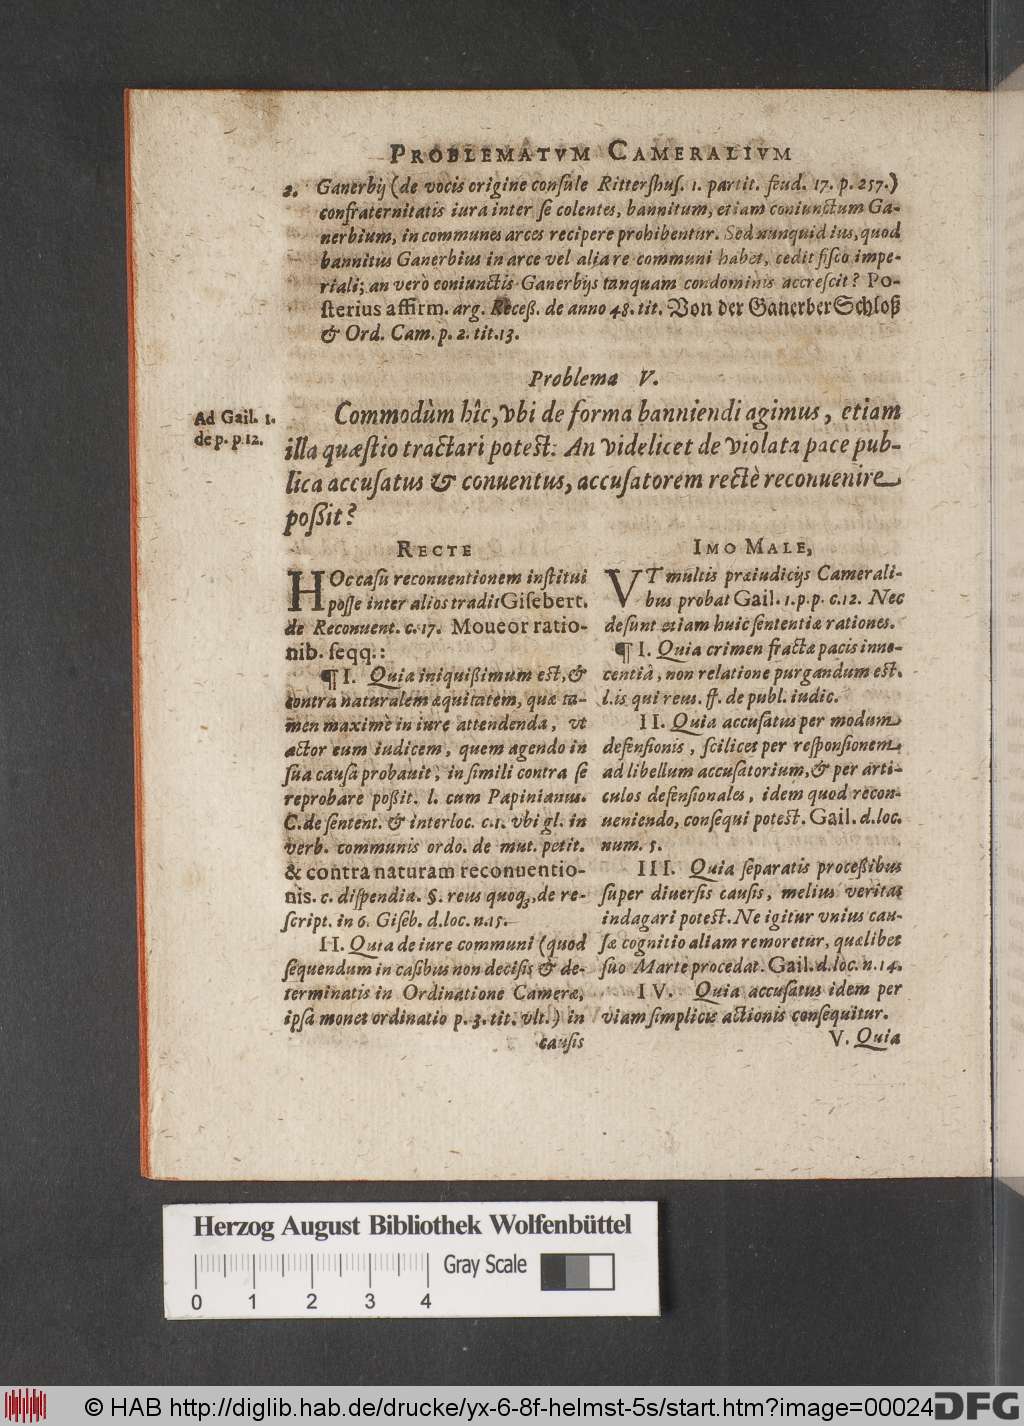 PROBLEMATVM CAMERALIVM
2. Ganerbij (de vocis origine consule Rittershus. 1. partit. feud. 17. p. 257.)
confraternitatis iura inter se colentes, bannitum, etiam coniunctum Ga-
nerbium, in communes arces recipere prohibentur. Sed nunquid ius, quod
bannitus Ganerbius in arce vel alia re communi habet, cedit fisco impe-
riali; an verò coniunctis Ganerbijs tanquam condominis accrescit? Po-
sterius affirm. arg. Receß. de anno 48. tit. Von der Ganerber Schloß
& Ord. Cam. p. 2. tit. 13.
Problema V.
Ad Gail. 1.
de p. p. 12.
Commodùm hîc, vbi de forma banniendi agimus, etiam
illa quæstio tractari potest: An videlicet de violata pace pub-
lica accusatus & conuentus, accusatorem rectè reconuenire
poßit?
RECTE
HOc casu reconuentionem institui
posse inter alios tradit Gisebert.
de Reconuent. c. 17. Moueor ratio-
nib. seqq.:
¶ I. Quia iniquißimum est, &
contra naturalem æquitatem, quæ ta-
men maximè in iure attendenda, vt
actor eum iudicem, quem agendo in
sua causa probauit, in simili contra se
reprobare poßit. l. cum Papinianus.
C. de sentent. & interloc. c. 1. vbi gl. in
verb. communis ordo. de mut. petit.
& contra naturam reconuentio-
nis. c. dispendia. §. reus quoq;, de re-
script. in 6. Giseb. d. loc. n. 15.
II. Quia de iure communi (quod
sequendum in casibus non decisis & de-
terminatis in Ordinatione Cameræ,
ipsa monet ordinatio p. 3. tit. vlt.) in
causis
IMO MALE,
VT multis præiudicijs Camerali-
bus probat Gail. 1. p. p. c. 12. Nec
desunt etiam huic sententiæ rationes.
¶ I. Quia crimen fractæ pacis inno-
centiâ, non relatione purgandum est.
l. is qui reus. ff. de publ. iudic.
II. Quia accusatus per modum
defensionis, scilicet per responsionem
ad libellum accusatorium, & per arti-
culos defensionales, idem quod recon-
ueniendo, consequi potest. Gail. d. loc.
num. 5.
III. Quia separatis proceßibus
super diuersis causis, melius veritas
indagari potest. Ne igitur vnius cau-
sæ cognitio aliam remoretur, quælibet
suo Marte procedat. Gail. d. loc. n. 14.
IV. Quia accusatus idem per
viam simplicis actionis consequitur.
V. Quia
Herzog August Bibliothek Wolfenbüttel
Gray Scale
0 1 2 3 4
© HAB http://diglib.hab.de/drucke/yx-6-8f-helmst-5s/start.htm?image=00024
DFG